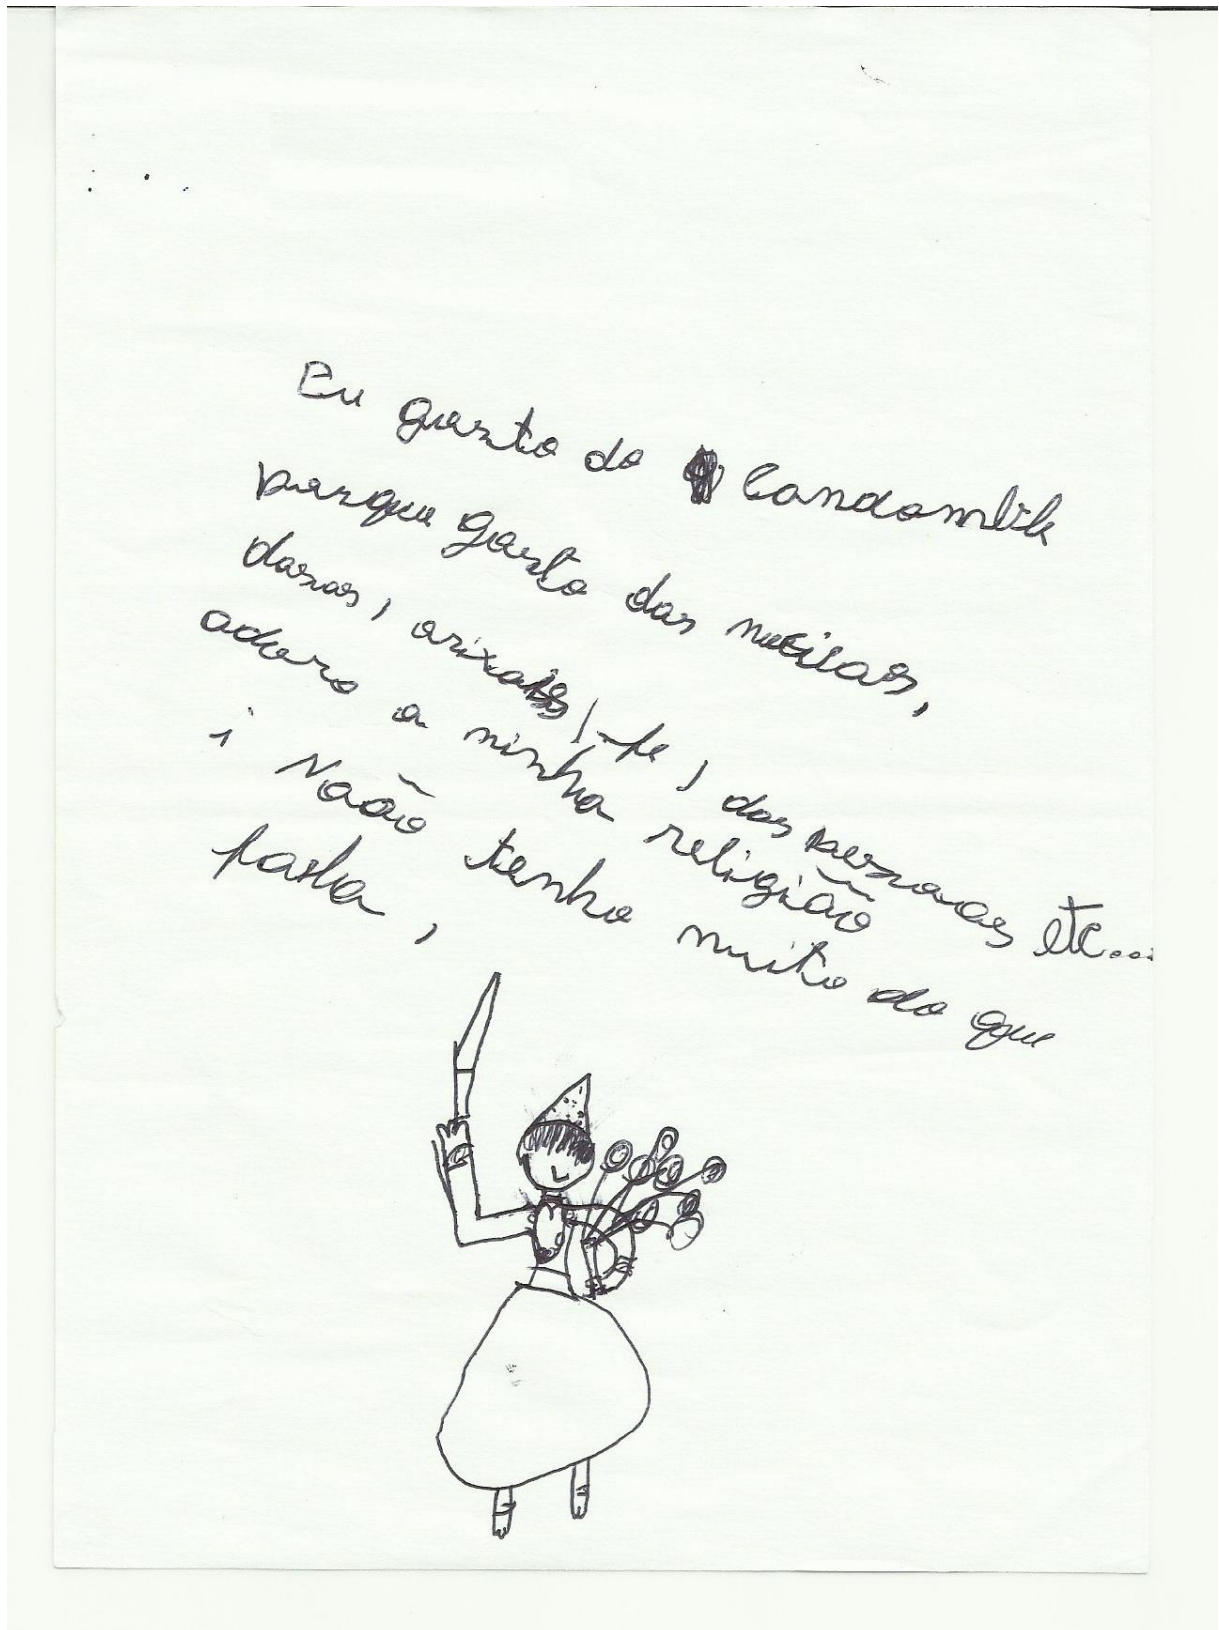 Eu gosto do Candomblé
porque gosto das muticas,
dansas, orixais, fe, das pessoas etc...
adoro a minha religião
i Naão tenho muito do que
falla,